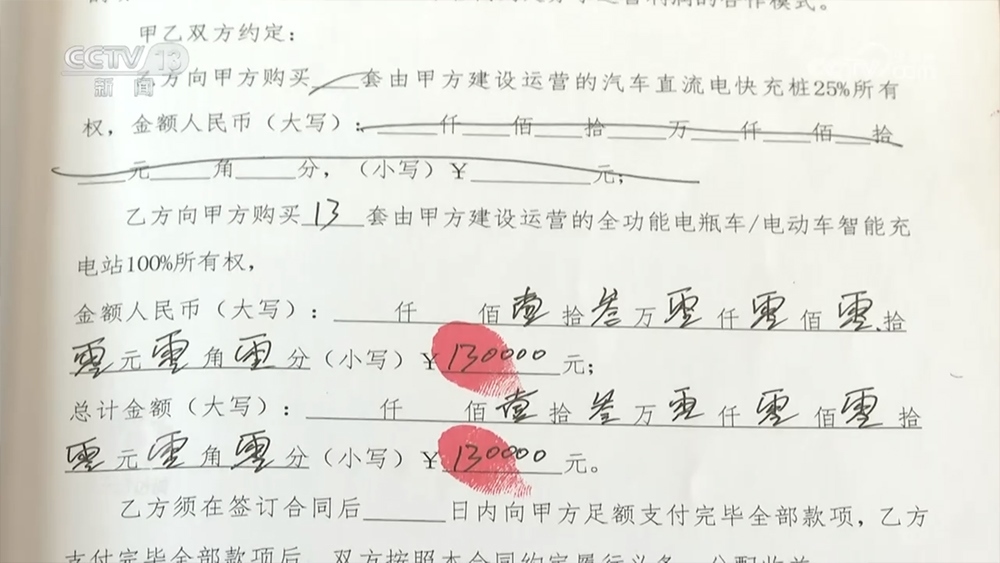 利润的合作模式。
甲乙双方约定：
CCTV 13
新闻
乙方向甲方购买____套由甲方建设运营的汽车直流电快充桩25%所有
权，金额人民币（大写）：____仟____佰____拾____万____仟____佰____拾
____元____角____分，（小写）¥________元；
乙方向甲方购买13套由甲方建设运营的全功能电瓶车/电动车智能充
电站100%所有权，
金额人民币（大写）：____仟____佰壹拾叁万零仟零佰零拾
零元零角零分（小写）¥130000元；
总计金额（大写）：____仟____佰壹拾叁万零仟零佰零拾
零元零角零分（小写）¥130000元。
乙方须在签订合同后____日内向甲方足额支付完毕全部款项，乙方
支付完毕全部款项后，双方按照本合同约定履行义务，分配收益